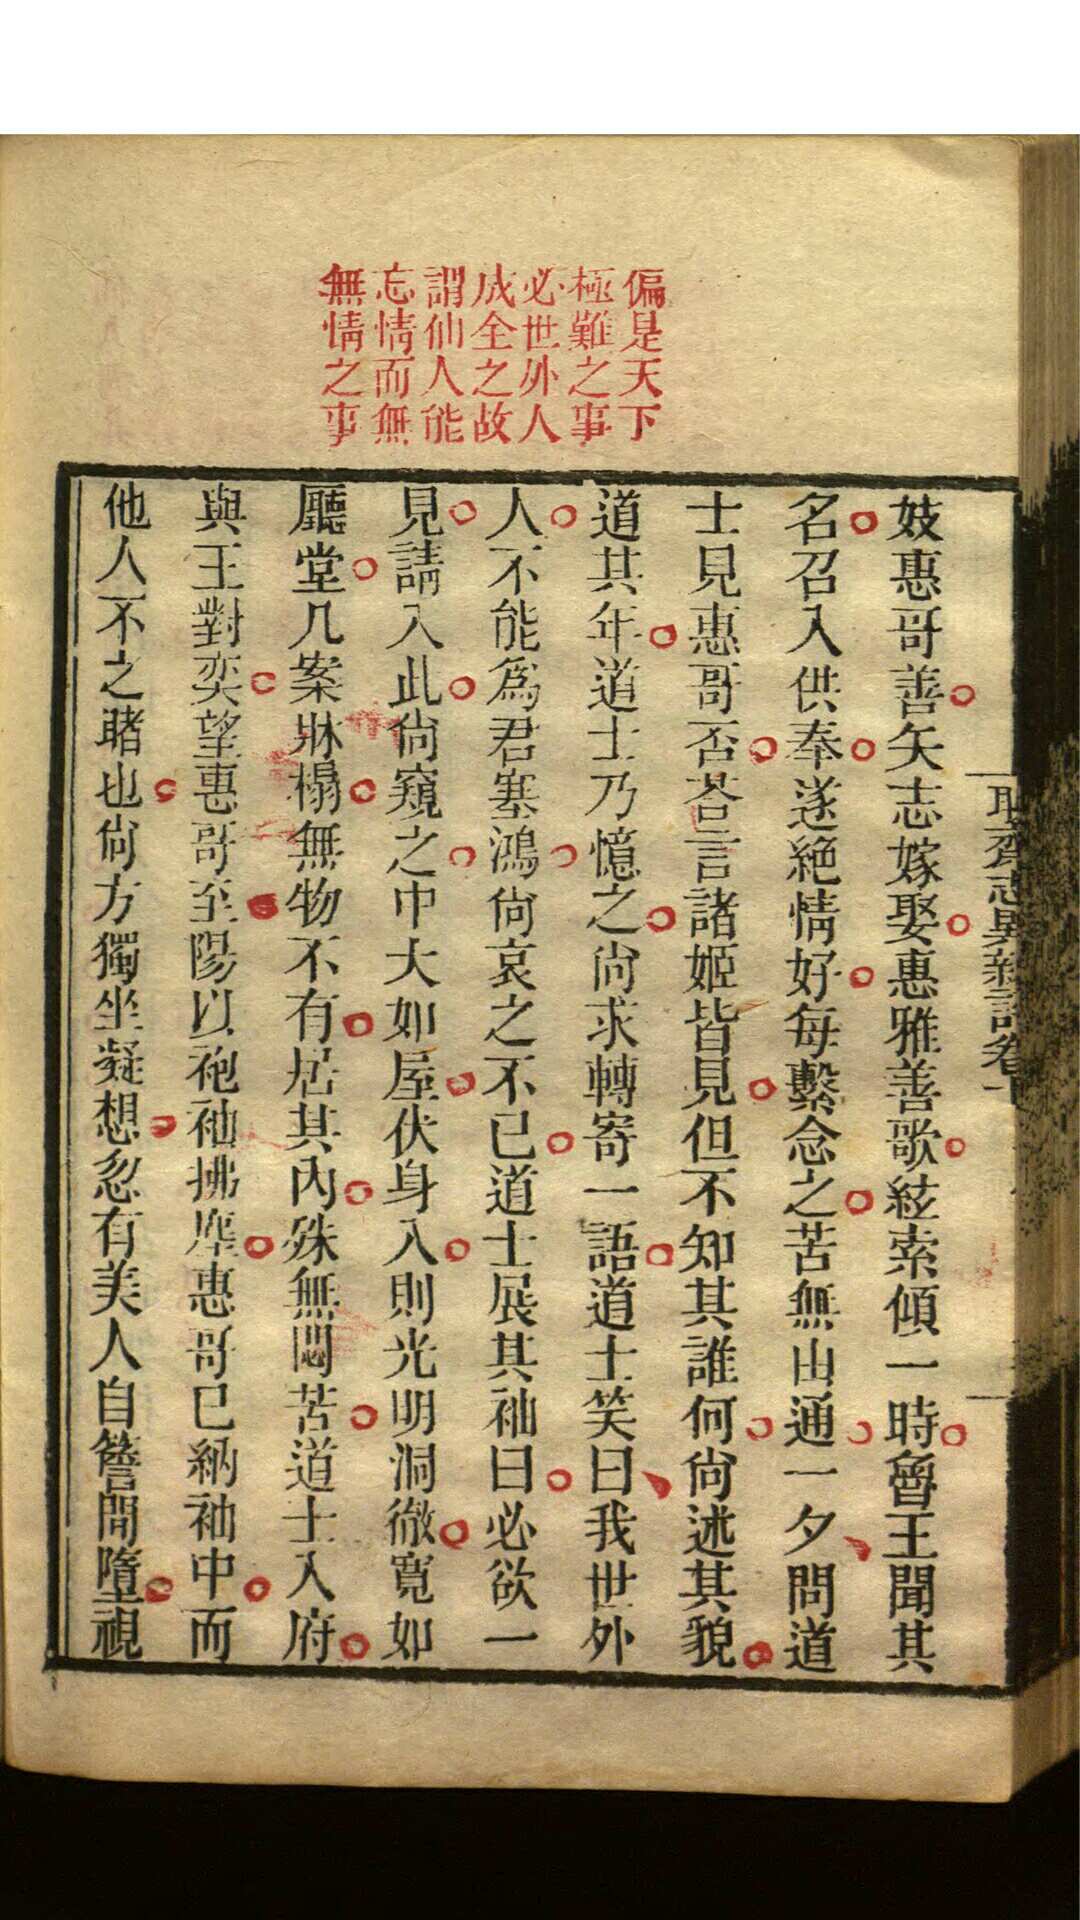 偏是天下
極難之事
必世外人
成全之故
謂仙人能
忘情而無
無情之事
聊齋志異新評卷十
妓惠哥善矢志嫁娶惠雅善歌絃索傾一時魯王聞其
名召入供奉遂絶情好每繫念之苦無由通一夕問道
士見惠哥否荅言諸姬皆見但不知其誰何尙述其貌
道其年道士乃憶之尙求轉寄一語道士笑曰我世外
人不能爲君塞鴻尙哀之不已道士展其袖曰必欲一
見請入此尙窺之中大如屋伏身入則光明洞徹寬如
廳堂几案牀榻無物不有居其內殊無悶苦道士入府
與王對奕望惠哥至陽以袍袖拂塵惠哥已納袖中而
他人不之睹也尙方獨坐凝想忽有美人自簷間墮視